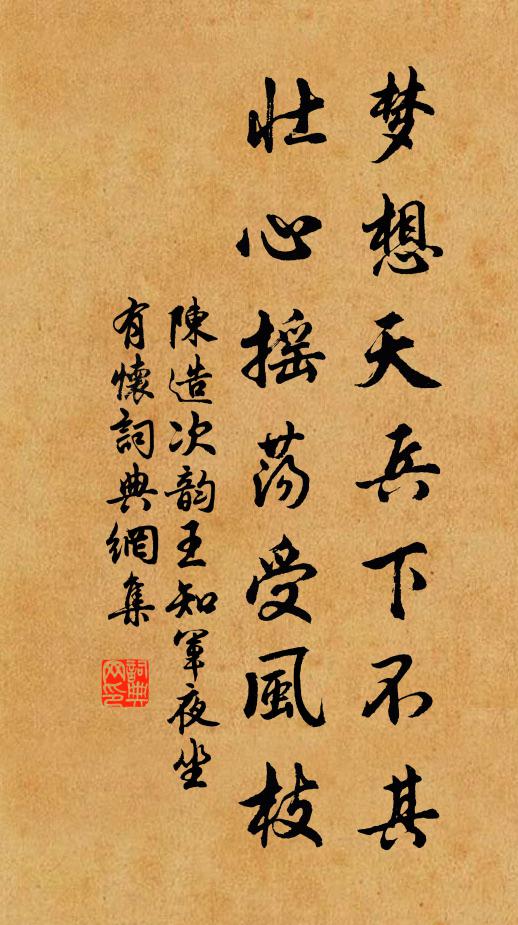 梦想天兵下不其
壮心摇荡受風枝
陳造次韵王知軍夜坐
有懷詞典網集
詞典
网印